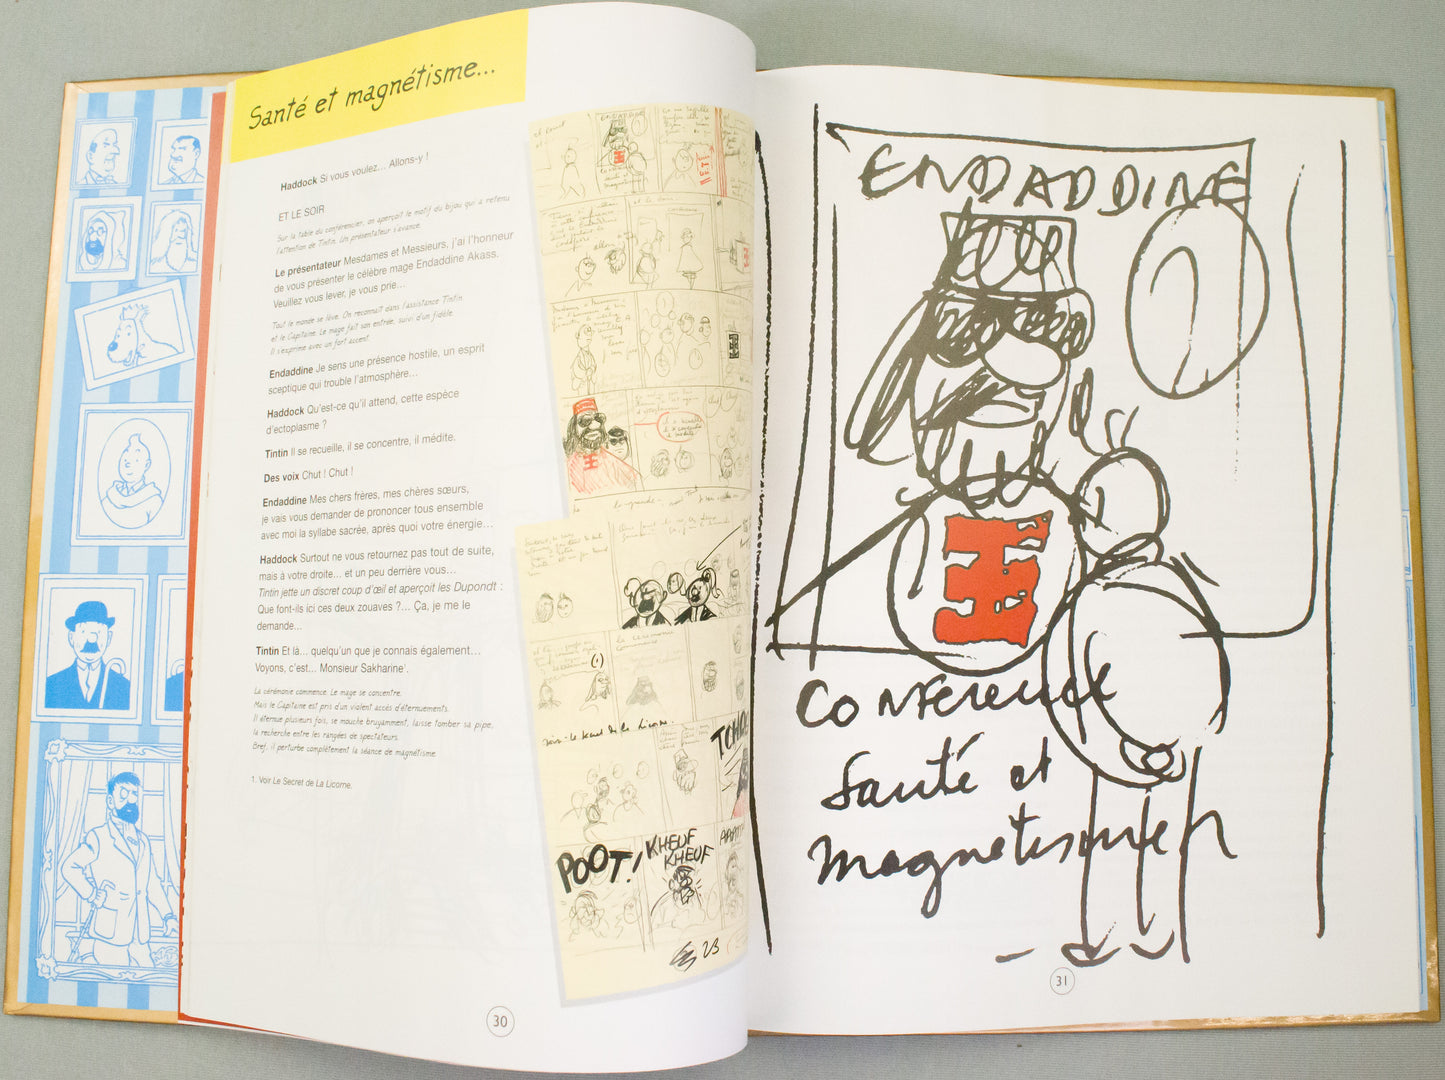 Santé et magnétisme...
Haddock Si vous voulez... Allons-y !
ET LE SOIR
Sur la table du conférencier, on aperçoit le motif du bijou qui a retenu
l'attention de Tintin. Un présentateur s'avance.
Le présentateur Mesdames et Messieurs, j'ai l'honneur
de vous présenter le célèbre mage Endaddine Akass.
Veuillez vous lever, je vous prie...
Tout le monde se lève. On reconnaît dans l'assistance Tintin
et le Capitaine. Le mage fait son entrée, suivi d'un fidèle.
Il s'exprime avec un fort accent.
Endaddine Je sens une présence hostile, un esprit
sceptique qui trouble l'atmosphère...
Haddock Qu'est-ce qu'il attend, cette espèce
d'ectoplasme ?
Tintin Il se recueille, il se concentre, il médite.
Des voix Chut ! Chut !
Endaddine Mes chers frères, mes chères sœurs,
je vais vous demander de prononcer tous ensemble
avec moi la syllabe sacrée, après quoi votre énergie...
Haddock Surtout ne vous retournez pas tout de suite,
mais à votre droite... et un peu derrière vous...
Tintin jette un discret coup d'œil et aperçoit les Dupondt :
Que font-ils ici ces deux zouaves ?... Ça, je me le
demande...
Tintin Et là... quelqu'un que je connais également...
Voyons, c'est... Monsieur Sakharine¹.
La cérémonie commence. Le mage se concentre.
Mais le Capitaine est pris d'un violent accès d'éternuements.
Il éternue plusieurs fois, se mouche bruyamment, laisse tomber sa pipe,
la recherche entre les rangées de spectateurs.
Bref, il perturbe complètement la séance de magnétisme.
1. Voir Le Secret de La Licorne.
30
ENDADDINE
Conférence
Santé et
magnétisme
POOT!
KHEUF
KHEUF
23
ENDADDINE
Conférence
Santé et
magnétisme
31